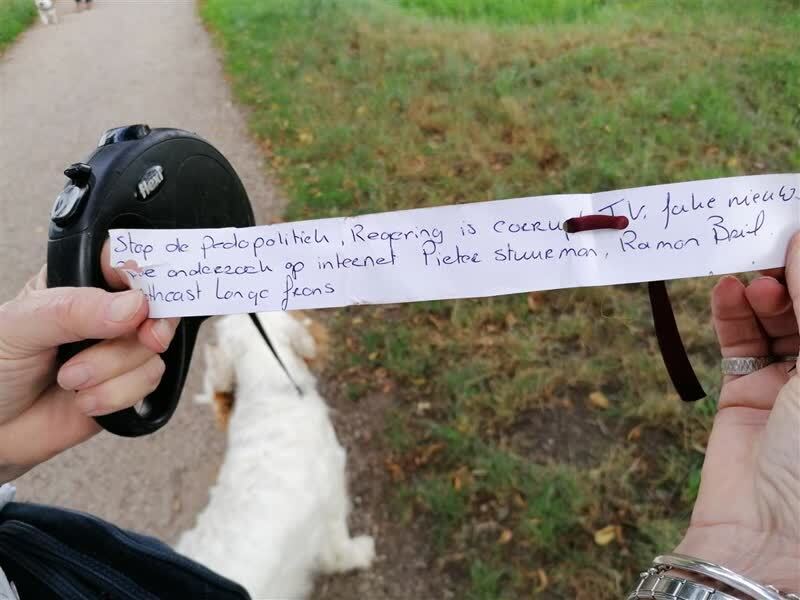 Stop de pedopolitiek, Regering is corrupt T.V. fake nieuws
onderzoek op internet Pieter stuurman, Ramon Bril.
Lange frans